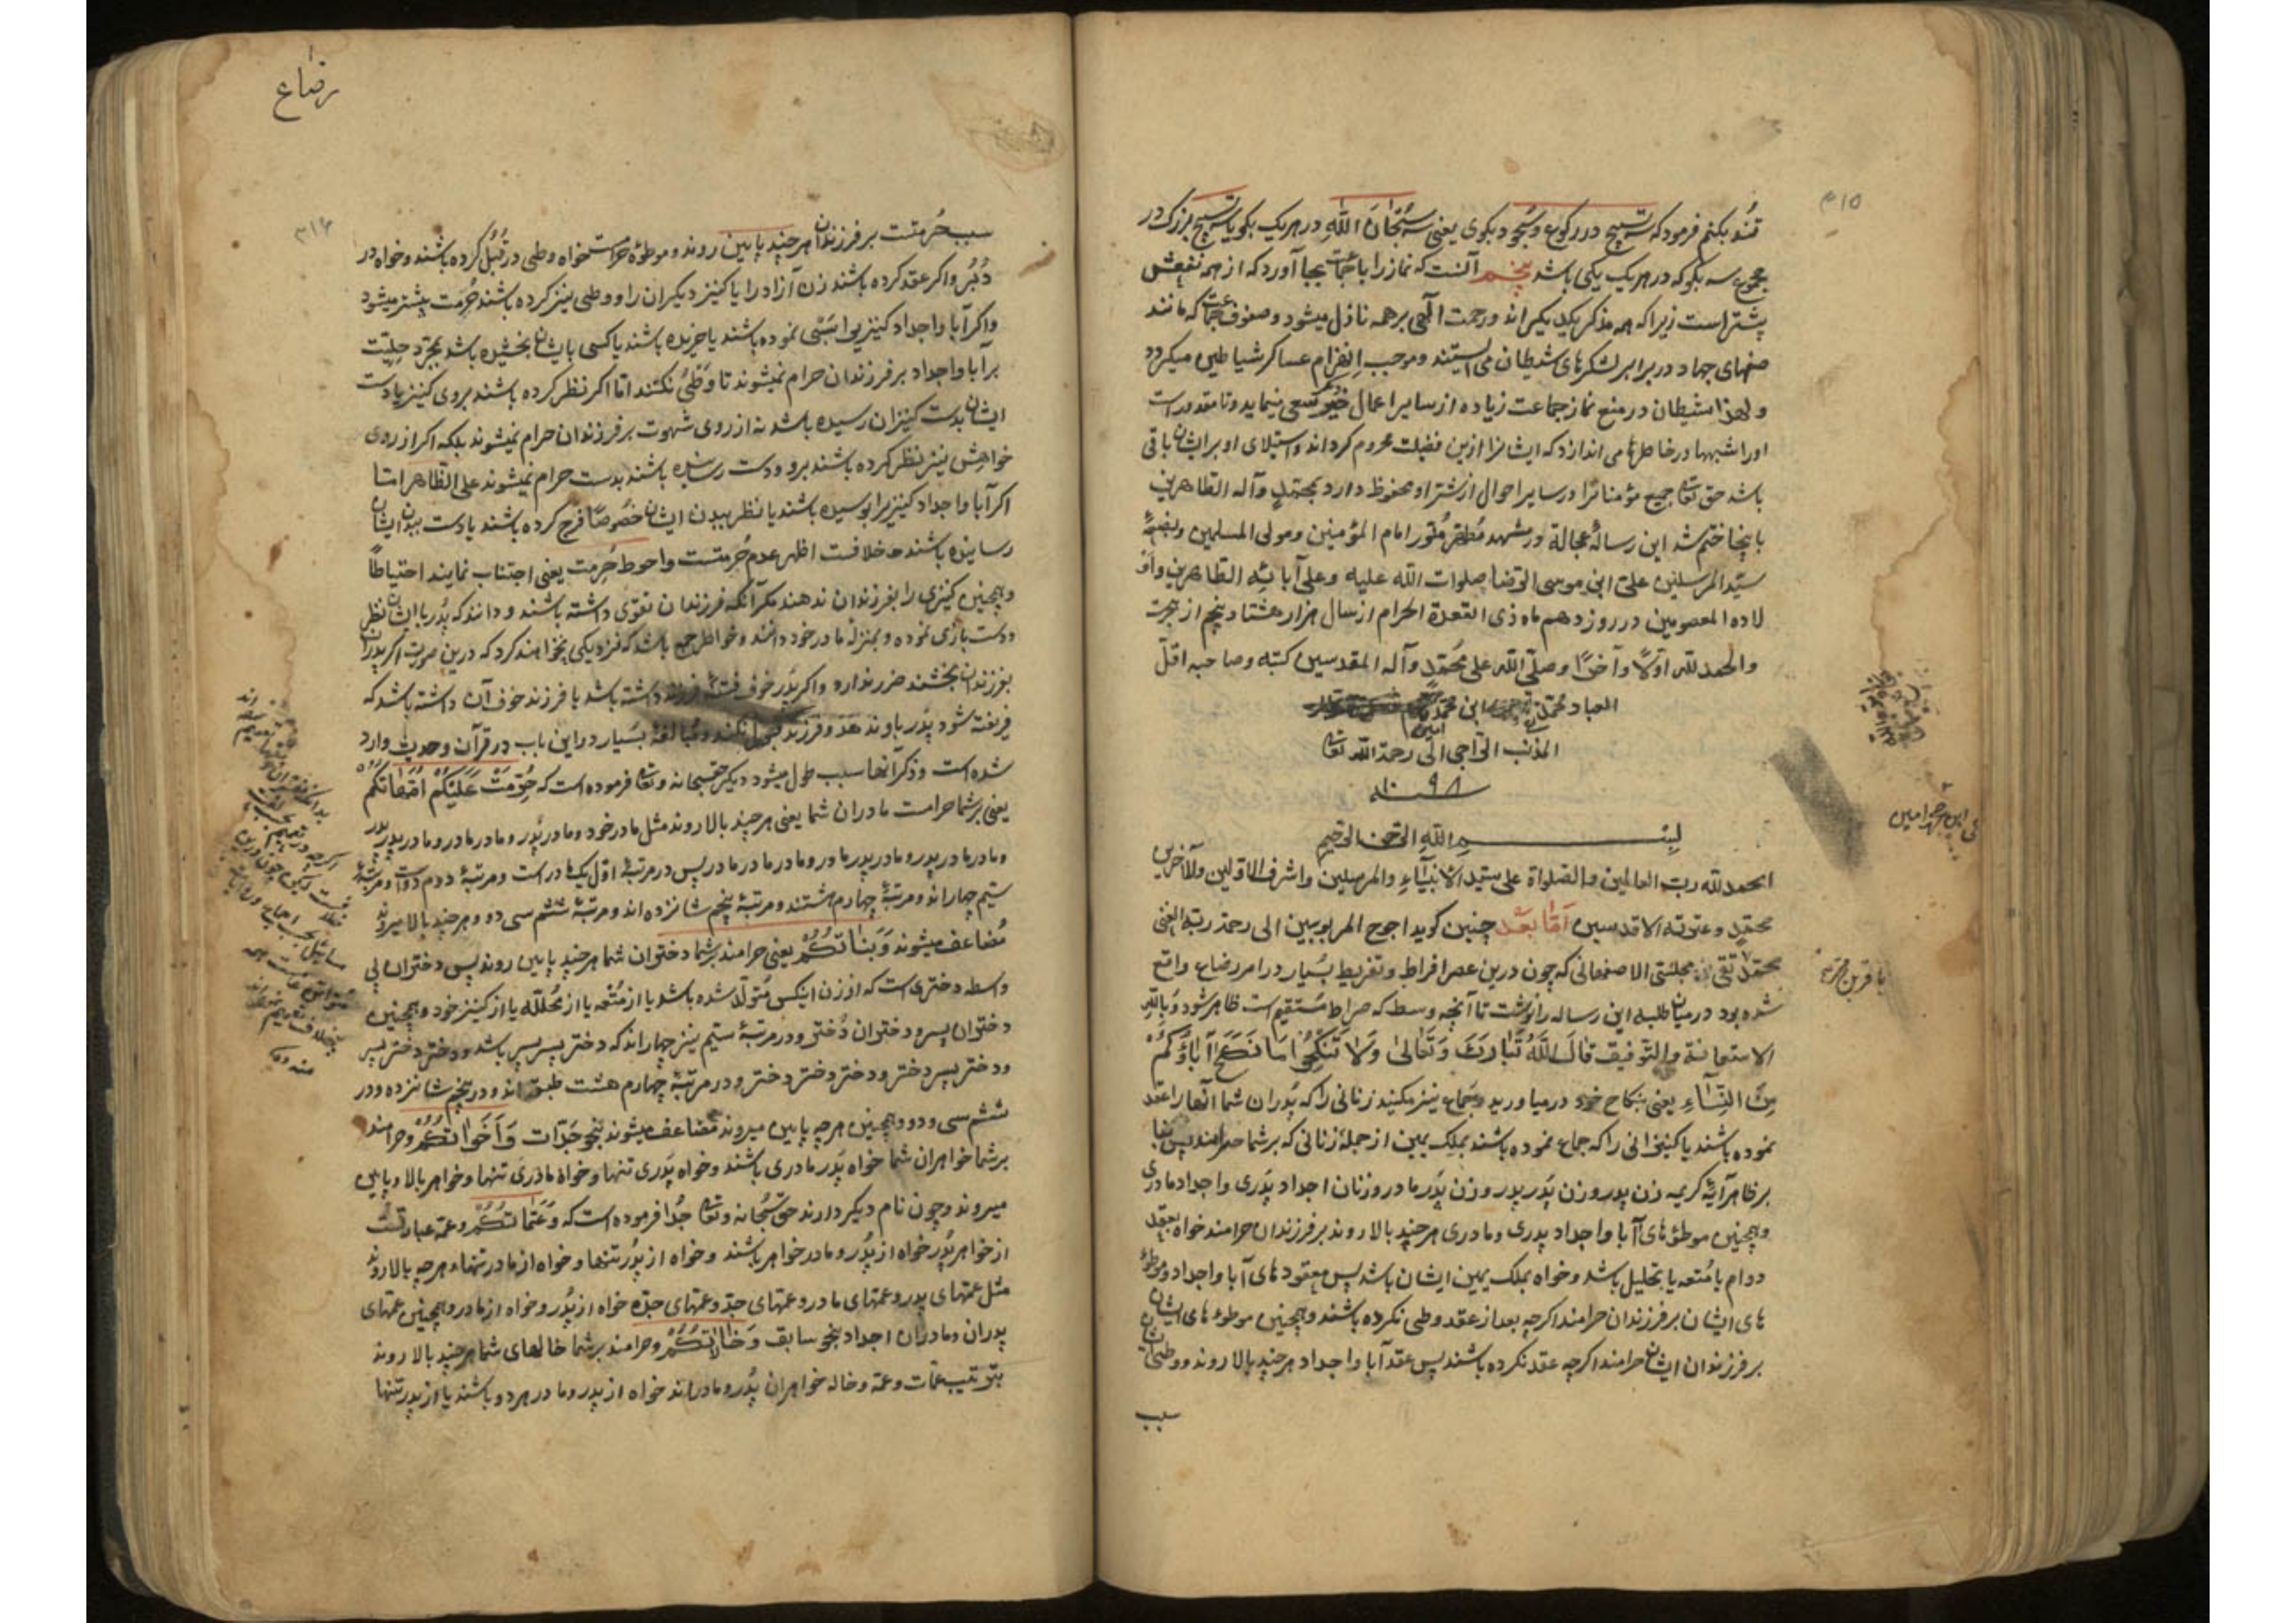 ۳۱۵
تند بکنم فرمود که تسبیح در رکوع و سجود بکوی یعنی سه سُبْحَانَ اللهِ در هر یک بکو یا سه تسبیح بزرک در
مجموع سه بکو که در هر یک یکی باشد پنجم آنست که نماز را با جماعت بجا آورد که از همه نفعش
پیشتر است زیرا که همه مذکر یکدیکراند و رحمت آلهی بر همه نازل میشود و صفوف جماعت که مانند
صفهای جهاد در برابر لشکرهای شیطان می ایستند و موجب اِنهِزام عساکر شیاطین میکردد
و لهذا شیطان در منع نماز جماعت زیاده از سایر اعمال خیر سعی مینماید و تا مقدور است
او را شبهها در خاطرها می اندازد که ایشانرا ازین فضیلت محروم کرداند و استیلای او بر ایشان باقی
باشد حق تعالی جمیع مؤمنانرا در سایر احوال از شر او محفوظ دارد بمحمّدٍ وآله الطاهرین
باینجا ختم شد این رسالهٔ عجاله در مشهد مُطهّر مُنوّر امام المؤمنین و مولی المسلمین و بضعة
سیّد المرسلین علیّ ابن موسی الرّضا صلوات الله علیه و علی آبائِهِ الطاهرین و او
لاده المعصومین در روز دهم ماه ذی القعدة الحرام از سال هزار هشتاد و پنجم از هجرت
والحمد لله اوّلًا وآخرًا وصلّی الله علی محمّدٍ وآله المقدسین کتبه وصاحبه اقلّ
العباد محمّد ابن محمّد
المذنب الرّاجی الی رحمة الله تعالی
۱۰۹۸ سنه
بِسْمِ اللهِ الرّحمن الرّحیم
الحمد لله ربّ العالمین والصّلواة علی سیّد الانبیآءِ والمرسلین واشرف الاوّلین والآخرین
محمّدٍ وعترته الاقدسین اَمّا بعد چنین کوید احوج المربوبین الی رحمة ربّه الغنی
محمّد تقی بن مجلسّی الاصفهانی که چون درین عصر افراط و تفریط بسیار در امر رضاع واقع
شده بود در میان طلبه این رساله را نوشت تا آنچه وسط که صراط مستقیم است ظاهر شود وَبِاللهِ
الاستعانة والتّوفیق قالَ اللهُ تَبَارَکَ وَتَعَالیٰ وَلَا تَنْکِحُوا مَا نَکَحَ آبَاؤُکُمْ
مِنَ النِّسَآءِ یعنی بنکاح خود در میاورید و جماع نیز مکنید زنانی را که پدران شما آنها را عقد
نموده باشند یا کنیزانی را که جماع نموده باشند بملک یمین از جملهٔ زنانی که بر شما حرامند پس بنا
بر ظاهر آیهٔ کریمه زن پدر و زن پَدر پدر و زن پَدر مادر و زنان اجداد پَدری و اجداد مادری
و همچنین موطؤهای آبا و اجداد پدری و مادری هر چند بالا روند بر فرزندان حرامند خواه بعقد
دوام یا مُتعه یا بتحلیل باشد و خواه بملک یمین ایشان باشد پس معقودهای آبا و اجداد و موطؤ
های ایشان بر فرزندان حرامند اکرچه بعد از عقد وطی نکرده باشند و همچنین موطوءهای ایشان
بر فرزندان ایشان حرامند اکرچه عقد نکرده باشند پس عقد آبا و اجداد هر چند بالا روند و وطی ایشان
سبب
رضاع
۳۱۶
سبب حُرمتست بر فرزندان هر چند پایین روند و موطؤه حرامست خواه وطی در قُبُل کرده باشند و خواه در
دُبُر و اکر عقد کرده باشند زن آزاد را یا کنیز دیکران را و وطی نیز کرده باشند حُرمت بیشتر میشود
و اکر آبا و اجداد کنیزیرا سَبْی نموده باشند یا خریده باشند یا کسی بایشان بخشیده باشد بمجرّد حلیّت
بر آبا و اجداد بر فرزندان حرام نمیشوند تا وَطْئ نکنند امّا اکر نظر کرده باشند بروی کنیز یا دست
ایشان بدست کنیزان رسیده باشد نه از روی شهوت بر فرزندان حرام نمیشوند بلکه اکر از روی
خواهِش نیز نظر کرده باشند برو و دست رسانیده باشند بدست حرام نمیشوند علی الظاهر امّا
اکر آبا و اجداد کنیزیرا بوسیده باشند یا نظر ببدن ایشان خُصوصًا فرج کرده باشند یا دست ببدن ایشان
رسانیده باشند خلافست اظهر عدم حُرمتست و احوط حُرمت یعنی اجتناب نمایند احتیاطًا
و همچنین کنیزی را بفرزندان ندهند مکر آنکه فرزندان تقوی داشته باشند و دانند که پُدر با ایشان نظر
و دست بازی نموده و بمنزلهٔ مادر خود دانند و خواطر جمع باشد که نزدیکی نخواهند کرد که درین صورت اکر پدران
بفرزندان بخشند ضرر ندارد و اکر پَدر خوف فتنهٔ فرزند داشته باشد یا فرزند خوف آن داشته باشد که
فریفته شود پَدر باو ندهد و فرزند قبول نکند و مُبالغهٔ بسیار در این باب در قرآن و حدیث وارد
شده است و ذکر آنها سبب طول میشود دیکر حقسبحانه وتعالی فرموده است که حُرِّمَتْ عَلَیْکُمْ اُمَّهَاتُکُمْ
یعنی بر شما حرامست مادران شما یعنی هر چند بالا روند مثل مادر خود و مادر پَدر و مادر مادر و مادر پدر پدر
و مادر مادر پدر و مادر پدر مادر و مادر مادر مادر پس در مرتبهٔ اوّل یک مادر است و مرتبهٔ دوم دو است و مرتبهٔ
سیّم چهاراند و مرتبهٔ چهارم هشتند و مرتبهٔ پنجم شانزده اند و مرتبهٔ ششم سی و دو و هر چند بالا میروند
مُضاعف میشوند وَبَنَاتُکُمْ یعنی حرامند بر شما دختران شما هر چند پایین روند پس دختران بی
واسطه دختری است که از زن اینکس مُتولّد شده باشد یا از مُتْعه یا از مُحلّله یا از کنیز خود و همچنین
دختران پسر و دختران دُختر و در مرتبهٔ سیّم نیز چهاراند که دختر پسر پسر باشد و دختر دختر پسر
و دختر پسر دختر و دختر دختر دختر و در مرتبهٔ چهارم هشت طبقه اند و در پنجم شانزده و در
ششم سی و دو و همچنین هر چه پایین میروند مُضاعف میشوند بنحو جَدّات وَاَخَوَاتُکُمْ و حرامند
بر شما خواهران شما خواه پَدر مادری باشند و خواه پَدری تنها و خواه مادَری تنها و خواهر بالا و پایین
میروند و چون نام دیکر دارند حقّ سُبْحانه وتعالی جُدا فرموده است که وَعَمَّاتُکُمْ و عمّه عبارتست
از خواهر پُدر خواه از پُدر و مادر خواهر باشند و خواه از پُدر تنها و خواه از مادر تنها و هر چه بالا روند
مثل عمّهای پدر و عمّهای مادر و عمّهای جدّ و عمّهای جدّه خواه از پُدر و خواه از مادر و همچنین عمّهای
پدران و مادران اجداد بنحو سابق وَخَالَاتُکُمْ و حرامند بر شما خالهای شما هر چند بالا روند
بترتیب عمّات و عمّه و خاله خواهران پُدر و مادراند خواه از پدر و مادر هر دو باشند یا از پدر تنها